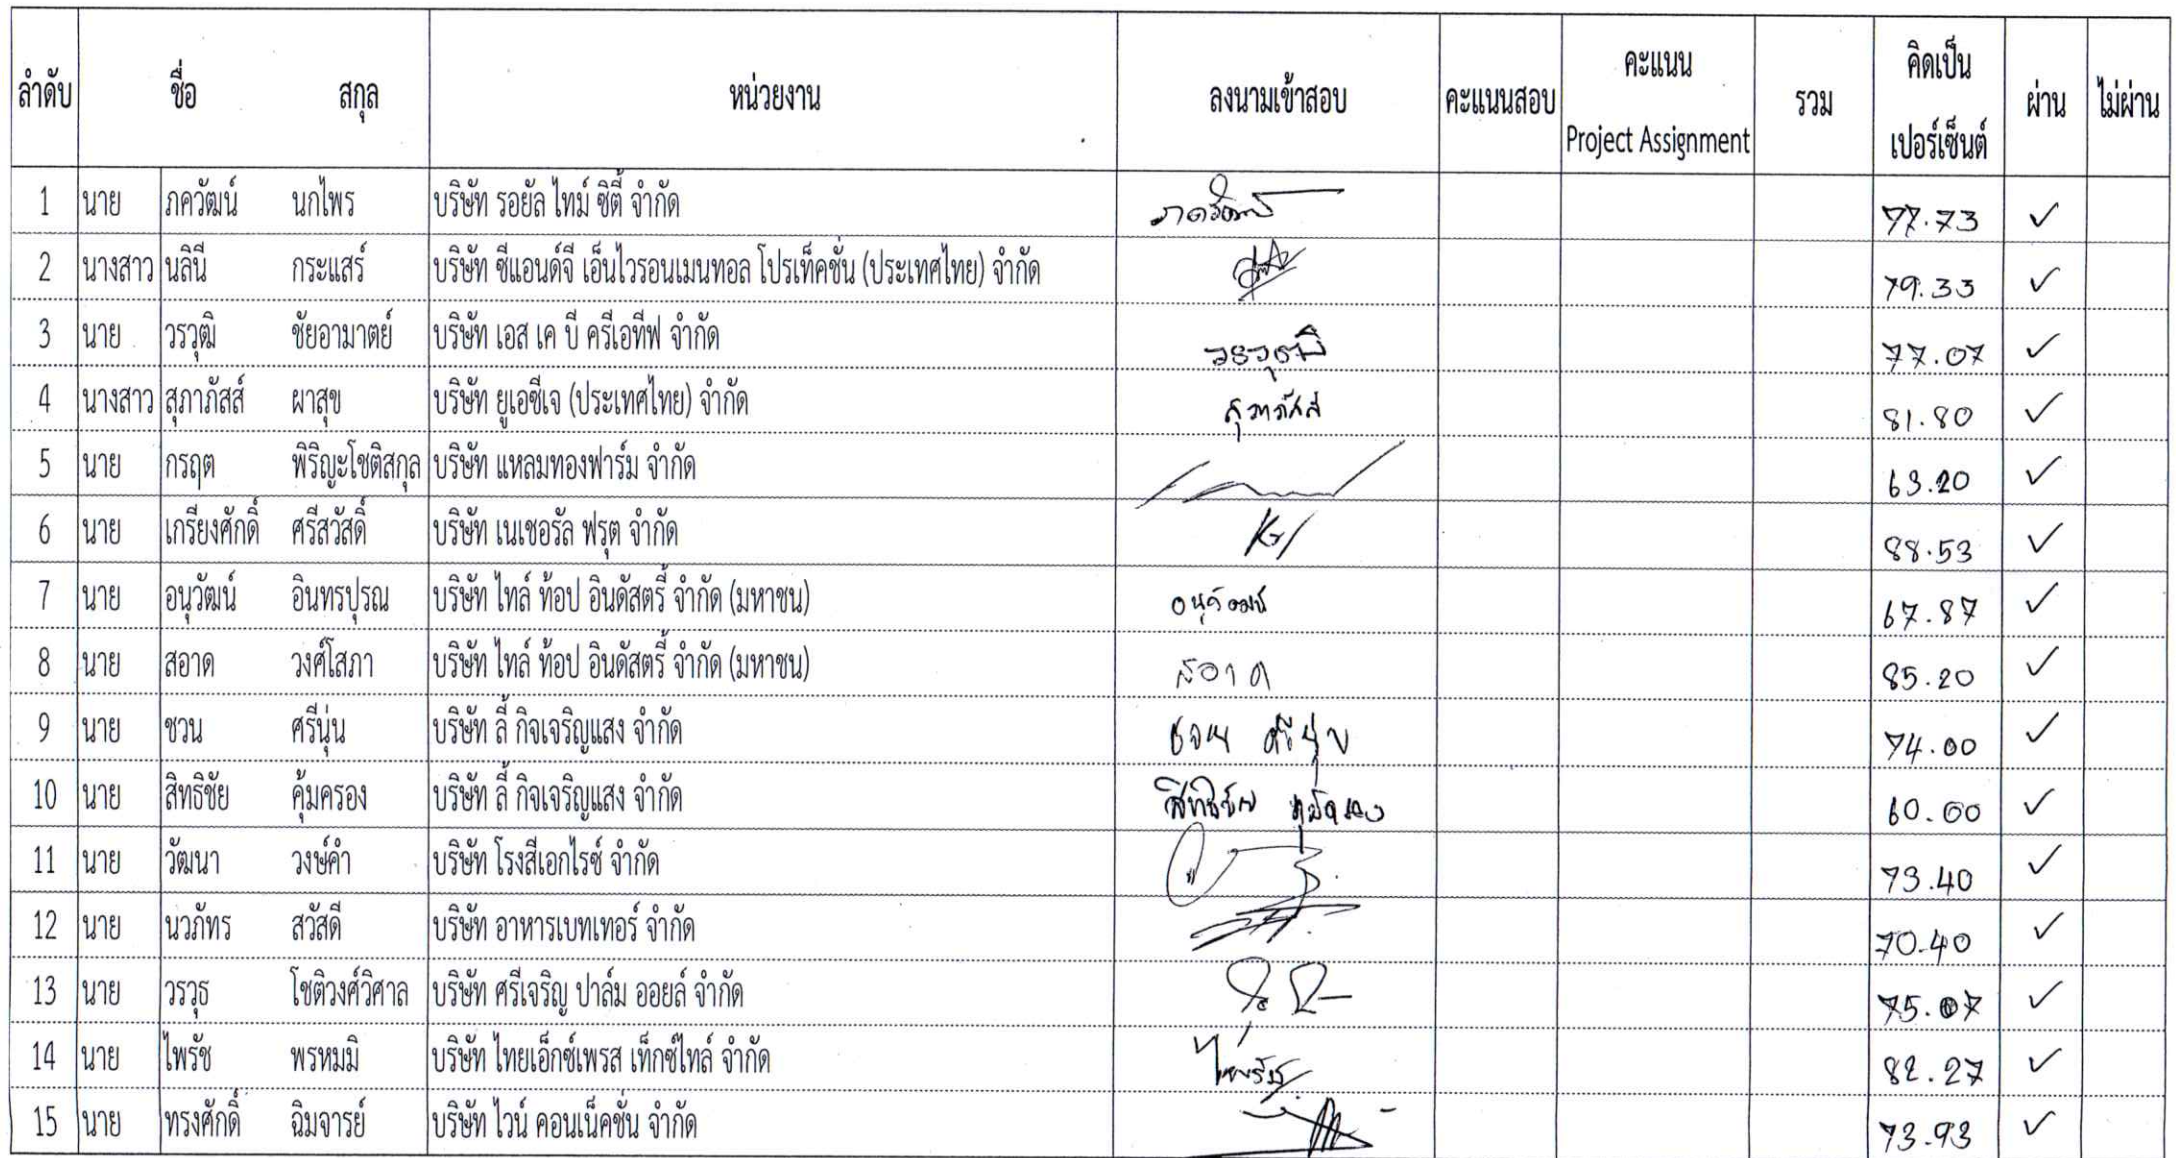 ลำดับ ชื่อ สกุล หน่วยงาน ลงนามเข้าสอบ คะแนนสอบ คะแนน Project Assignment รวม คิดเป็น เปอร์เซ็นต์ ผ่าน ไม่ผ่าน
1 นาย ภควัฒน์ นกไพร บริษัท รอยัล ไทม์ ซิตี้ จำกัด ภควัฒน์ 77.73 ✓
2 นางสาว นลินี กระแสร์ บริษัท ซีแอนด์จี เอ็นไวรอนเมนทอล โปรเท็คชั่น (ประเทศไทย) จำกัด 79.33 ✓
3 นาย วรวุฒิ ชัยอามาตย์ บริษัท เอส เค บี ครีเอทีฟ จำกัด วรวุฒิ 77.07 ✓
4 นางสาว สุภาภัสส์ ผาสุข บริษัท ยูเอซีเจ (ประเทศไทย) จำกัด สุภาภัสส์ 81.80 ✓
5 นาย กรฤต พิริญะโชติสกุล บริษัท แหลมทองฟาร์ม จำกัด 63.20 ✓
6 นาย เกรียงศักดิ์ ศรีสวัสดิ์ บริษัท เนเชอรัล ฟรุต จำกัด 88.53 ✓
7 นาย อนุวัฒน์ อินทรปุรณ บริษัท ไทล์ ท้อป อินดัสตรี้ จำกัด (มหาชน) อนุวัฒน์ 67.87 ✓
8 นาย สอาด วงศ์โสภา บริษัท ไทล์ ท้อป อินดัสตรี้ จำกัด (มหาชน) สอาด 85.20 ✓
9 นาย ชวน ศรีนุ่น บริษัท ลี้ กิจเจริญแสง จำกัด ชวน ศรีนุ่น 74.00 ✓
10 นาย สิทธิชัย คุ้มครอง บริษัท ลี้ กิจเจริญแสง จำกัด สิทธิชัย คุ้มครอง 60.00 ✓
11 นาย วัฒนา วงษ์คำ บริษัท โรงสีเอกไรซ์ จำกัด 73.40 ✓
12 นาย นวภัทร สวัสดี บริษัท อาหารเบทเทอร์ จำกัด 70.40 ✓
13 นาย วรวุธ โชติวงศ์วิศาล บริษัท ศรีเจริญ ปาล์ม ออยล์ จำกัด 75.07 ✓
14 นาย ไพรัช พรหมมิ บริษัท ไทยเอ็กซ์เพรส เท็กซ์ไทล์ จำกัด ไพรัช 82.27 ✓
15 นาย ทรงศักดิ์ ฉิมจารย์ บริษัท ไวน์ คอนเน็คชั่น จำกัด 73.93 ✓